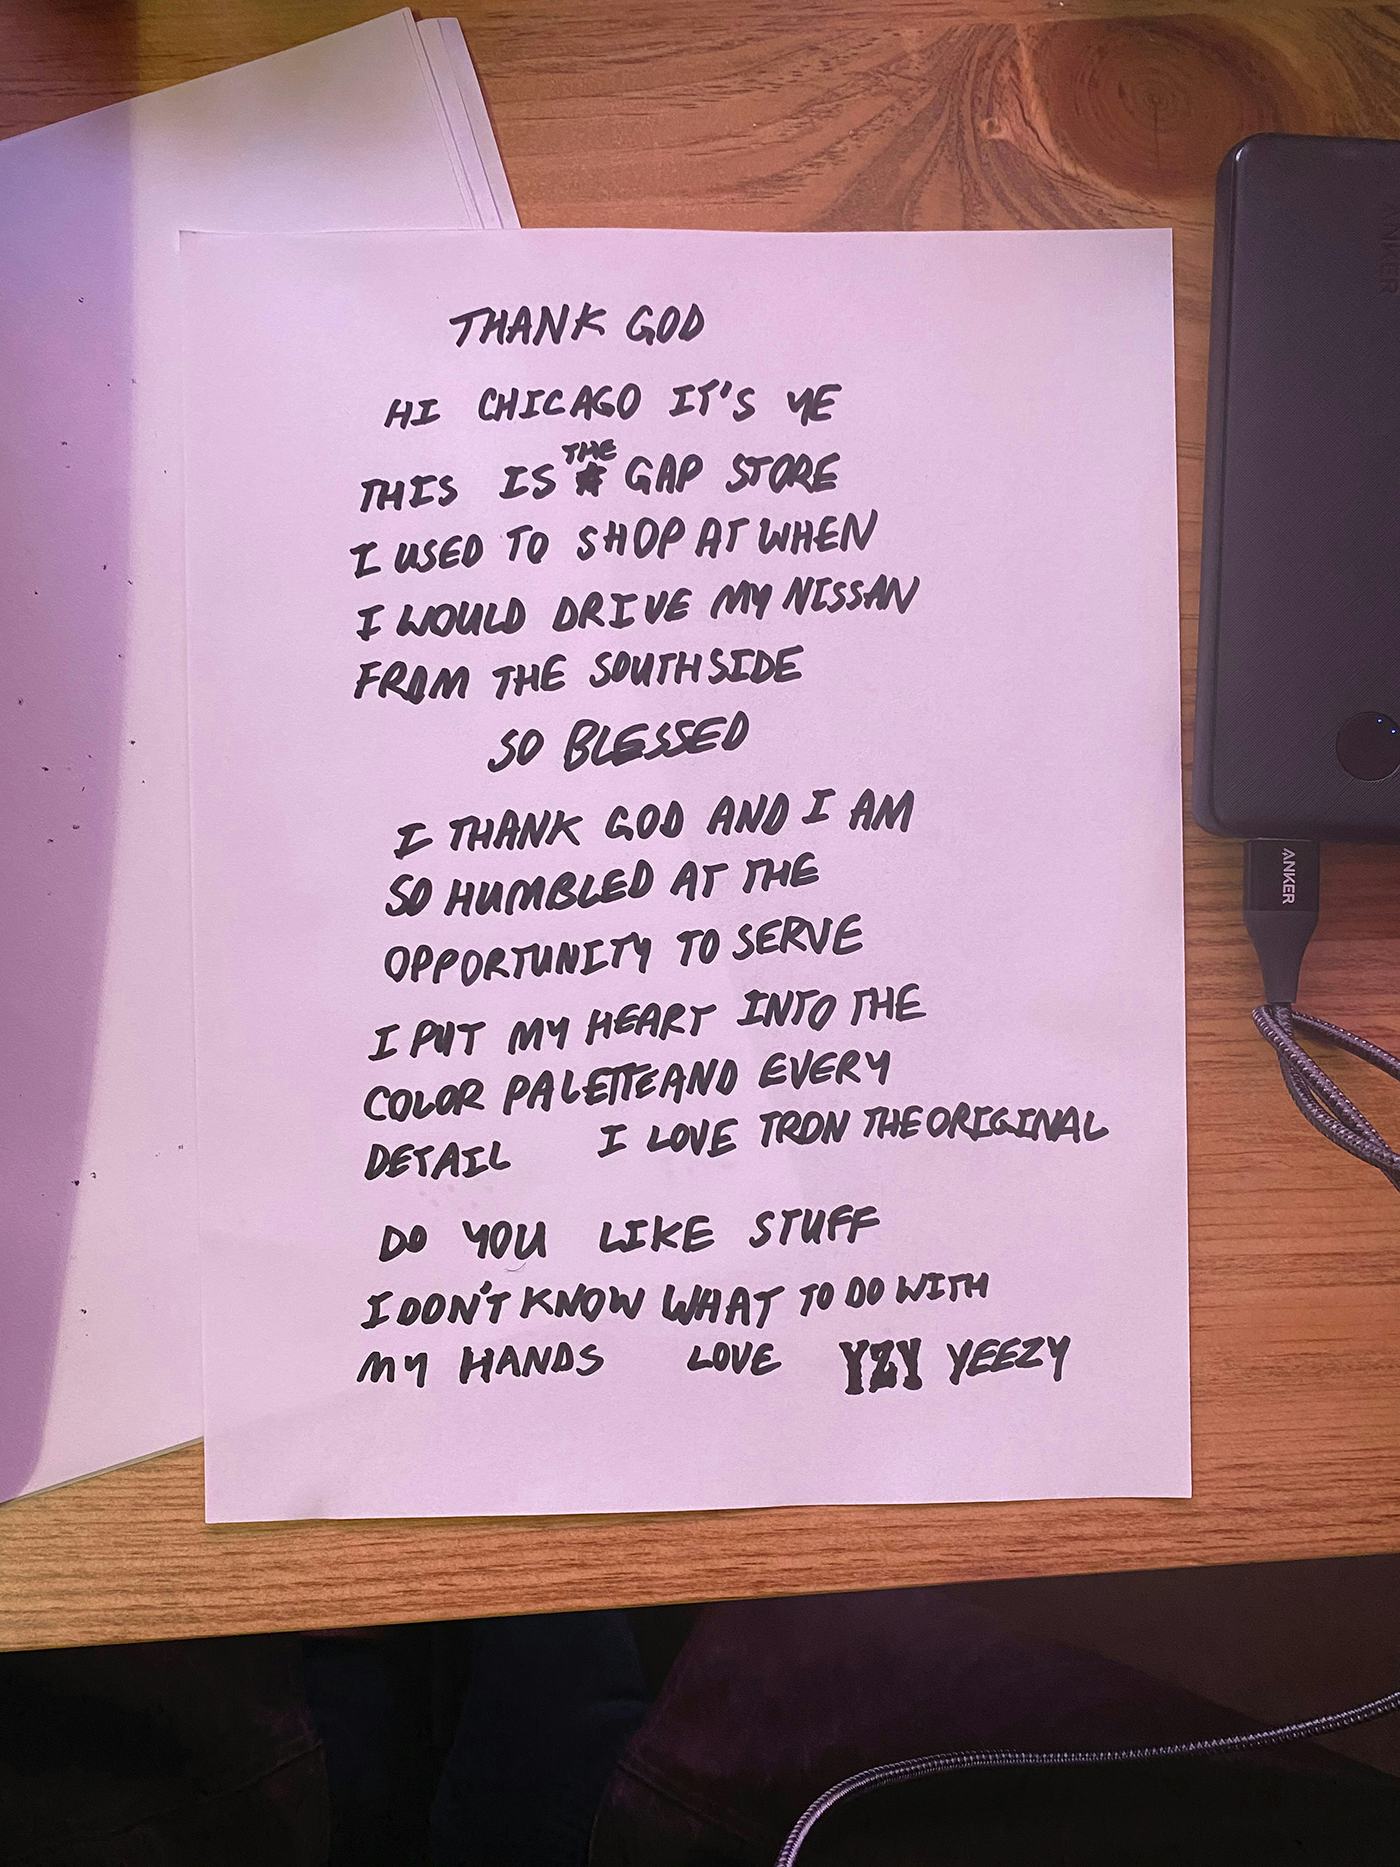 THANK GOD
HI CHICAGO IT'S YE
THIS IS THE GAP STORE
I USED TO SHOP AT WHEN
I WOULD DRIVE MY NISSAN
FROM THE SOUTHSIDE
SO BLESSED
I THANK GOD AND I AM
SO HUMBLED AT THE
OPPORTUNITY TO SERVE
I PUT MY HEART INTO THE
COLOR PALETTE AND EVERY
DETAIL I LOVE TRON THE ORIGINAL
DO YOU LIKE STUFF
I DON'T KNOW WHAT TO DO WITH
MY HANDS LOVE YZY YEEZY
ANKER
ANKER